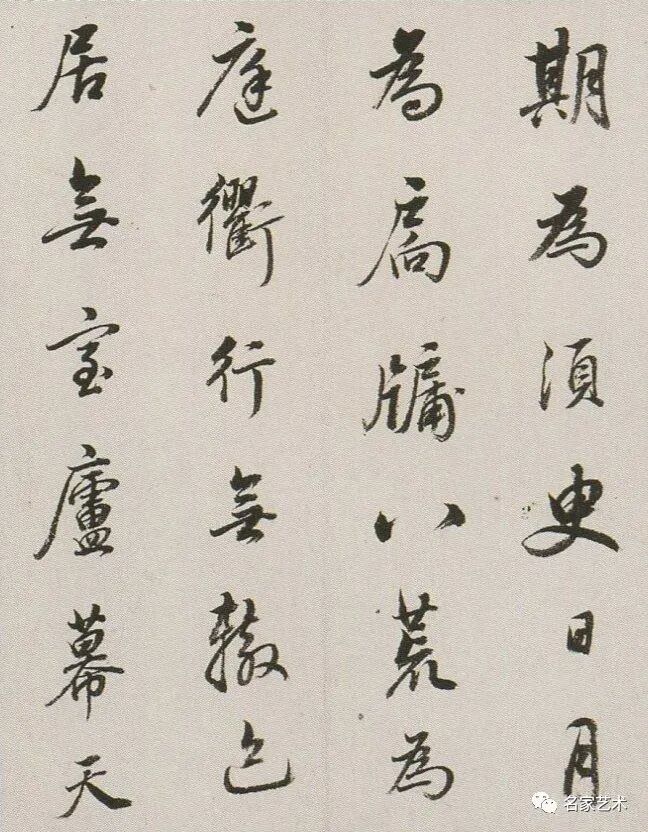 期為須臾日月
為扄牖八荒為
庭衢行無轍迹
居無室廬幕天
名家艺术